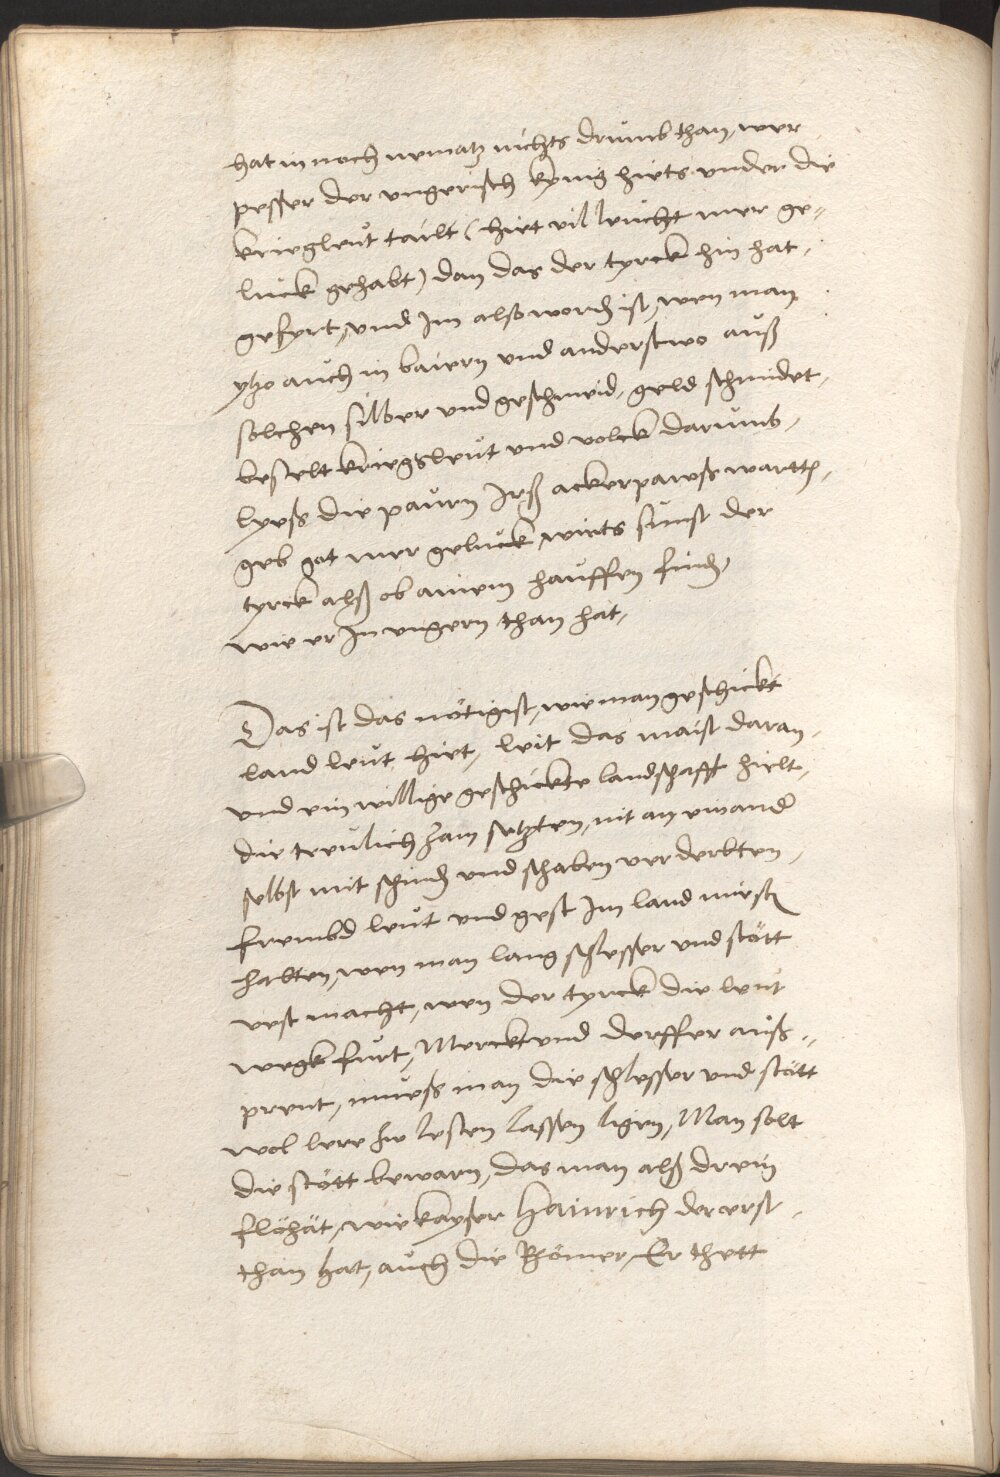 hat in noch nematz nichts drumb than, wer
pesser der ungerisch kynig hiets under die
kriegleut tailt (hiet villeucht mer ge-
luck gehabt) dan das der tyrck hin hat,
gefyrt, und Im also word ist, wen man
ytzo auch in baiern und anderstwo auß
solchen silber und geschmeid, geld schmidet,
bestelt kriegsleut und volck darumb,
lyess die paurn Irß ackerpawß wartten,
geb got mer geluck, wirts sunst der
tyrck alß ob ainem hauffen find,
wie er In ungern than hat,
Das ist das nötigist, wie man geschickt
land leut hiet, leit das maist daran,
und ein willige geschickte landschafft hielt,
die treulich zam setzten, nit an einand
selbst mit schind und schaben verderbten,
frembd leut und gest Im land miesten
halten, wen man lang schlesser und stött
vest macht, wen der tyrck die leut
wegk fürt, Merckt und derffer auß-
prent, muess man die schlesser und stött
wol lere hie lesten lassen ligen, Man solt
die stött bewarn, das man alß drein
flöhät, wie kayser Hainrich der erst,
than hat, auch die Römer, Er thett